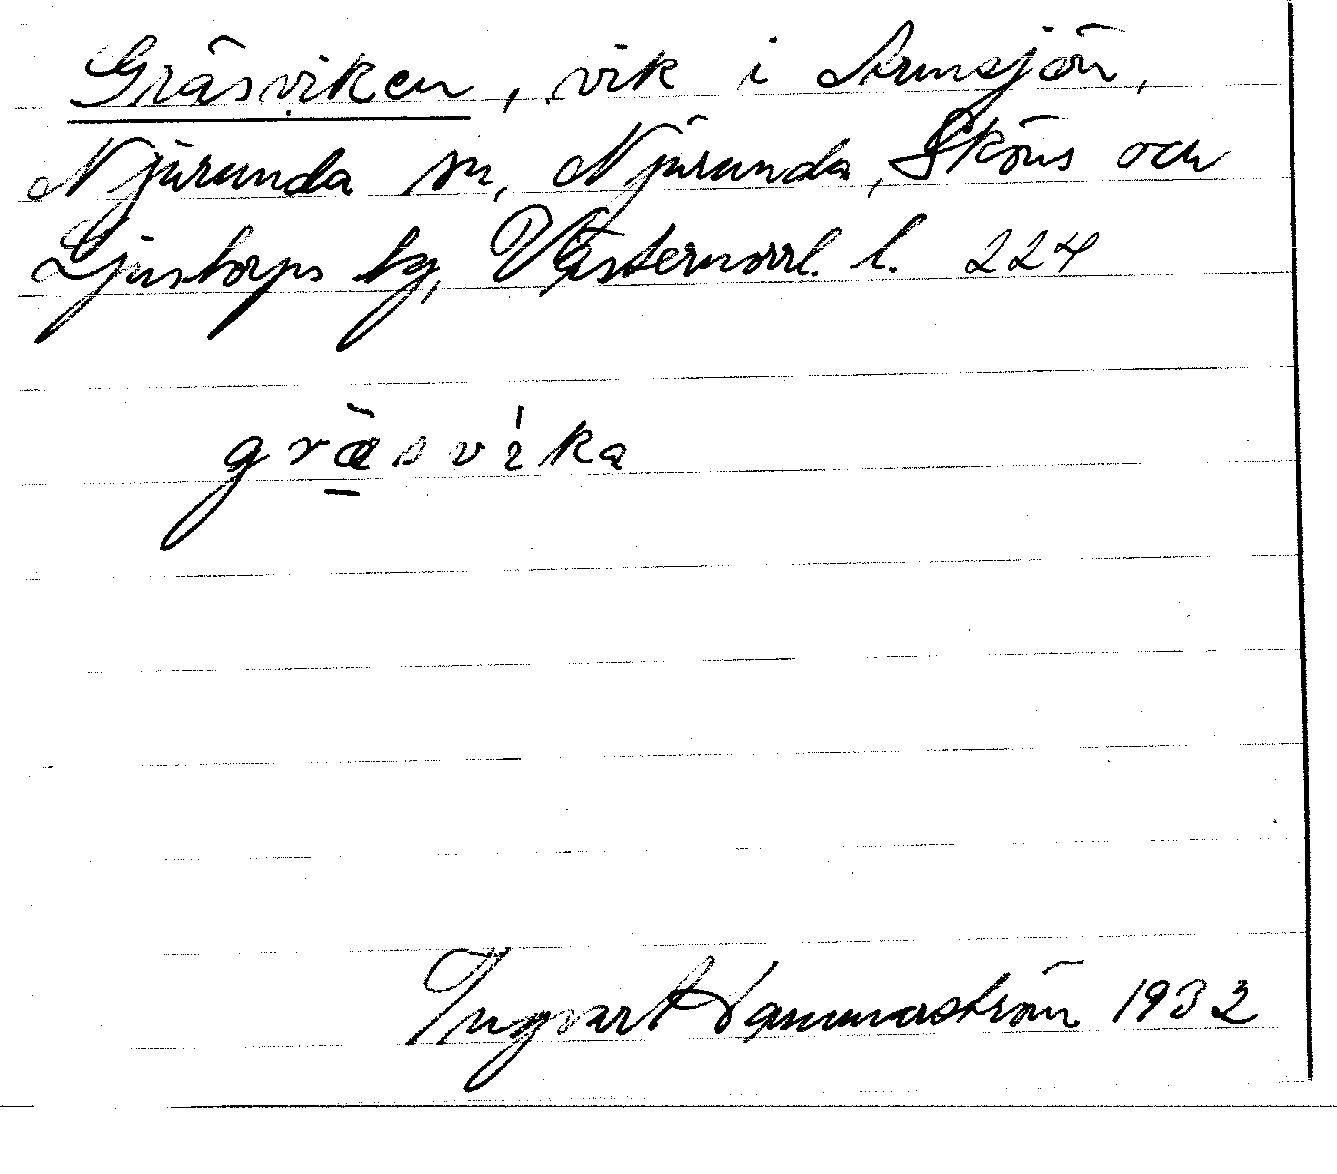 Gräsviken, vik i Armsjön,
Njurunda sn, Njurunda, Sköns och
Ljustorps tg, Västernorrl. l. 224
gräsvika
Ingvar Hammarström 1932